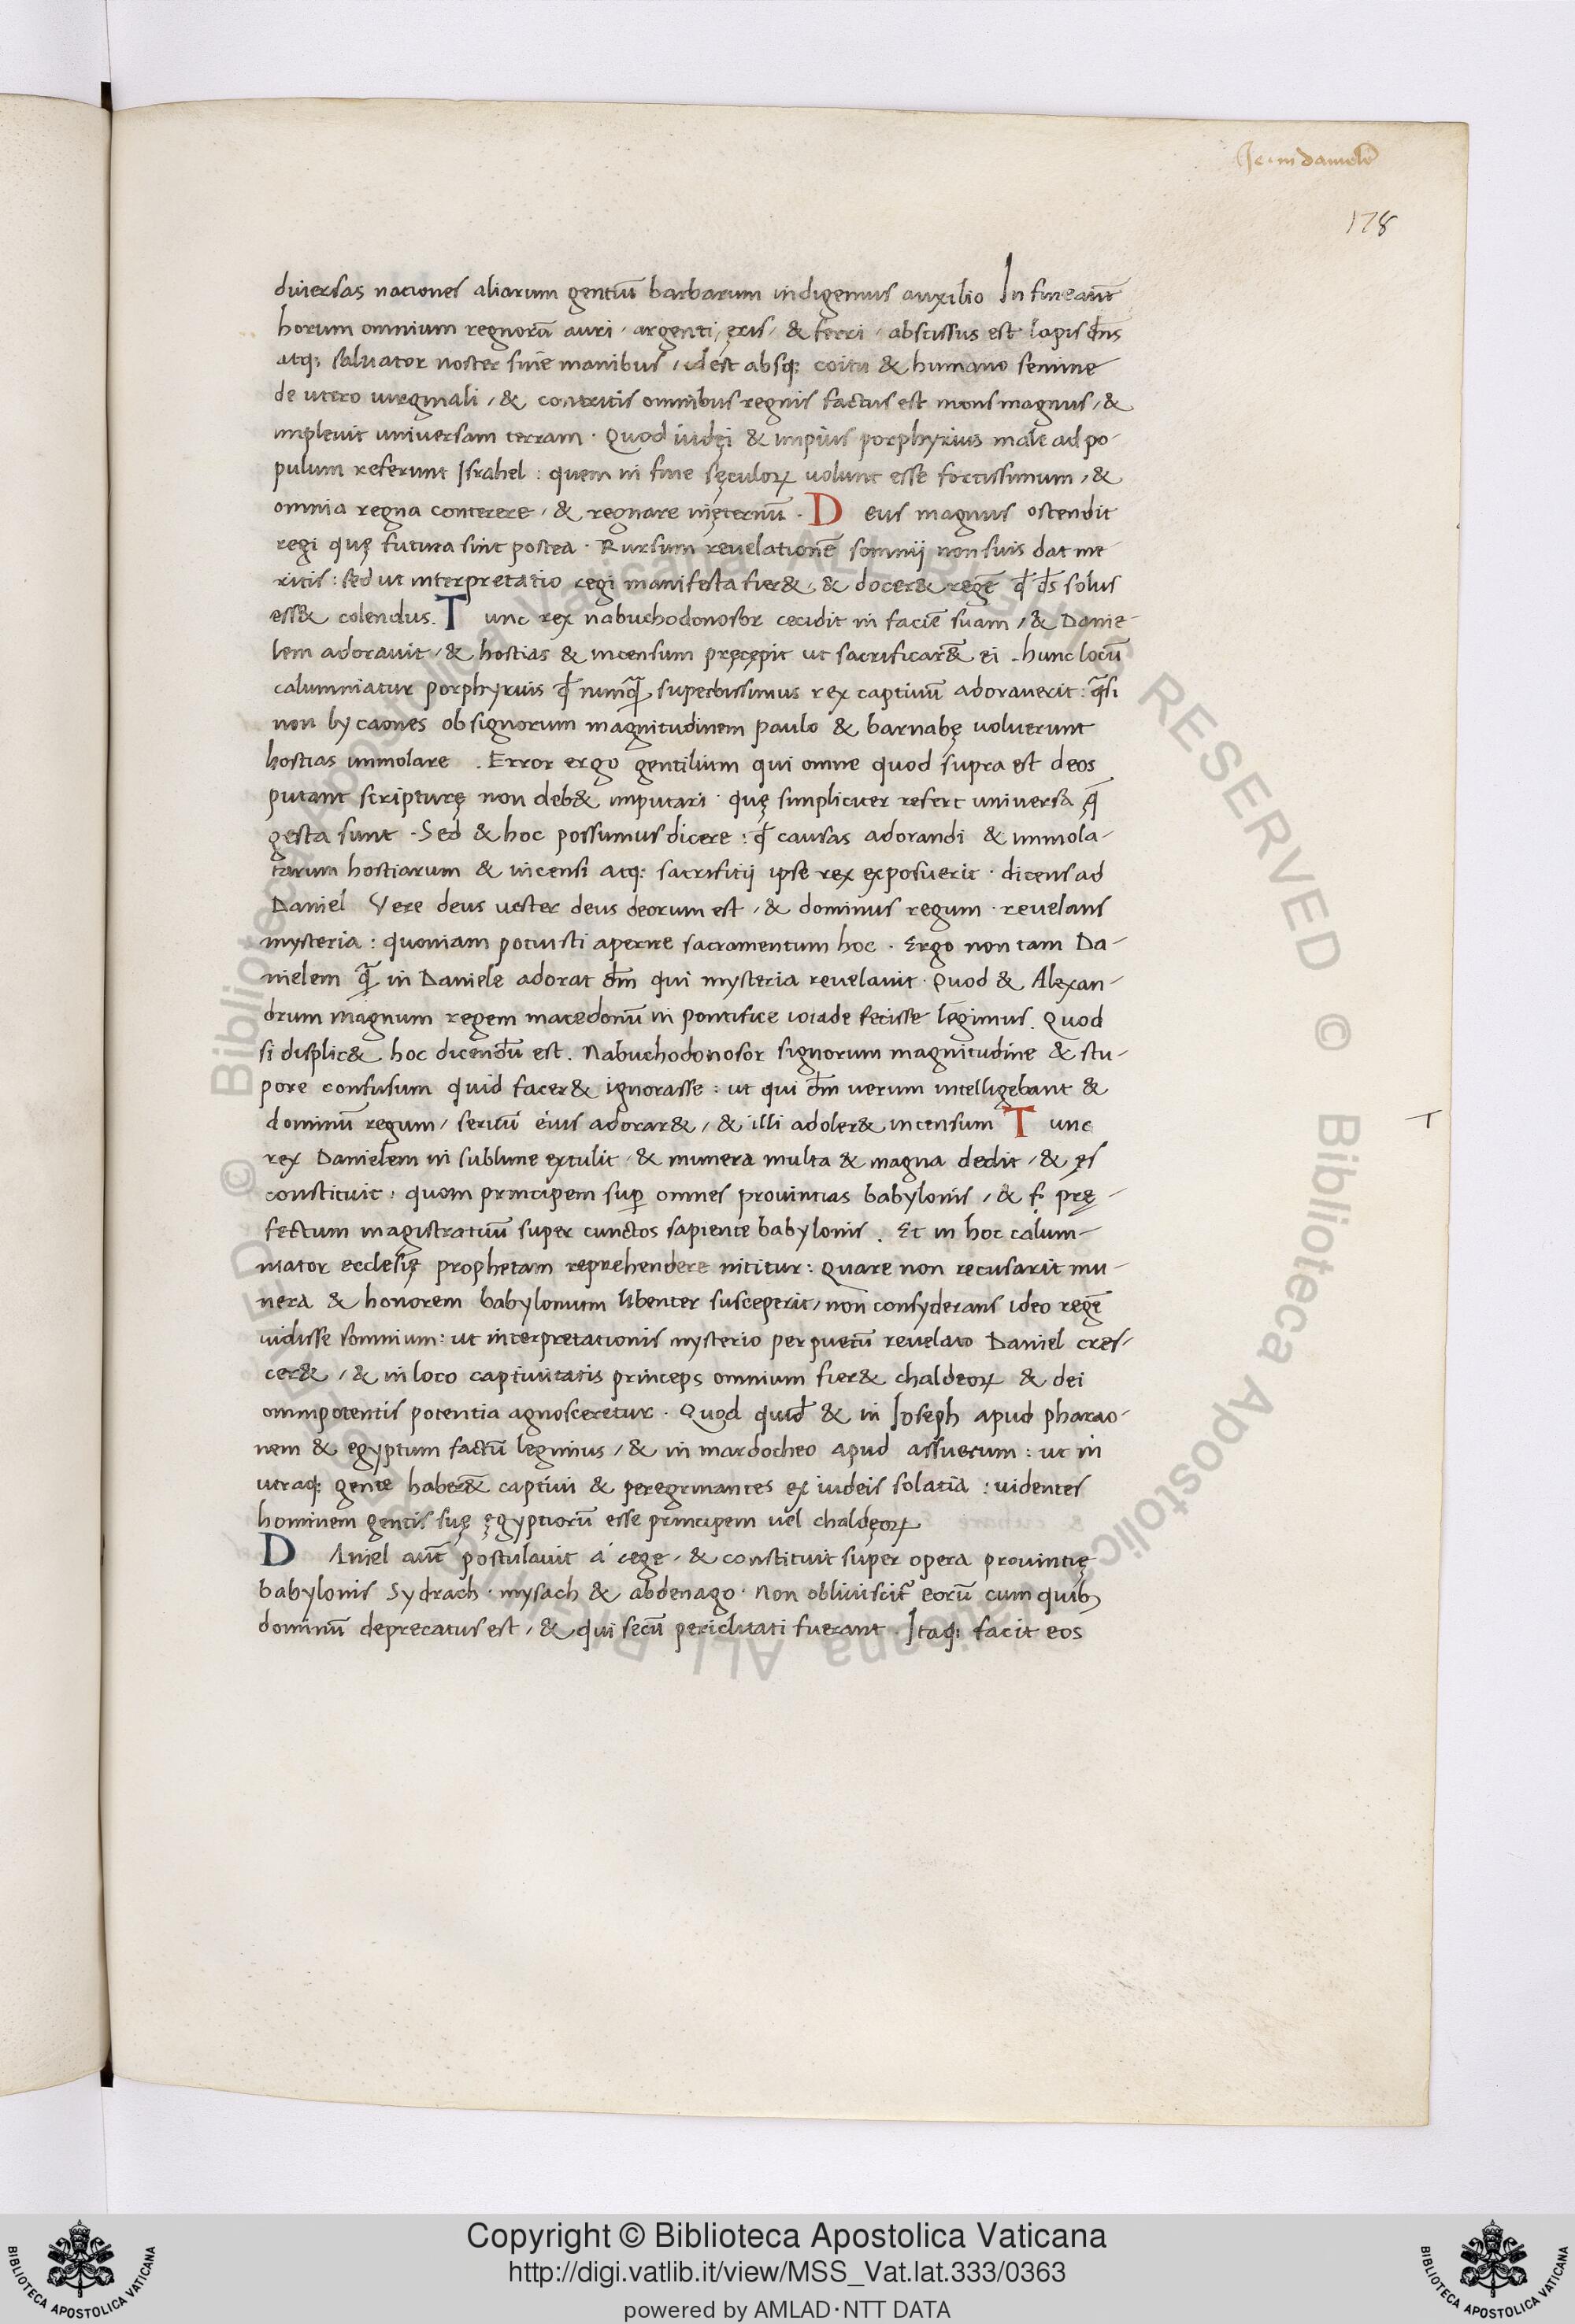 Jer in daniele͂
178
diversas nationes aliarum gentiū barbarum indigemus auxilio In fine aūt
horum omnium regnorū auri, argenti, ęris, & ferri, abscissus est lapis dn̄s
atq; salvator noster sine manibus, idest absq; coitu & humano semine
de utero virginali, & contritis omnibus regnis factus est mons magnus, &
implevit universam terram. Quod iudęi & impius porphyrius male ad po-
pulum referunt Israhel: quem in fine sęculoꝝ volunt esse fortissimum, &
omnia regna conterere, & regnare inęternū. Deus magnus ostendit
regi quę futura sint postea. Rursum revelationē somnij non suis dat me
ritis: sed ut interpretatio regi manifesta fier&, & docer& regē qd̄ ds̄ solus
ess& colendus. Tunc rex nabuchodonosor cecidit in faciē suam, & Danie-
lem adoravit, & hostias & incensum pręcepit ut sacrificar&̄ ei. hunc locū
calumniatur porphyrius qd̄ numꝗ̄ superbissimus rex captivū adoraverit: q̄si
non lycaones ob signorum magnitudinem paulo & barnabę voluerunt
hostias immolare. Error ergo gentilium qui omne quod supra est deos
putant scripturę non deb& imputari. quę simpliciter refert universa q̄
gesta sunt. Sed & hoc possumus dicere: qd̄ causas adorandi & immola-
tarum hostiarum & incensi atq; sacrifitij ipse rex exposuerit. dicens ad
Daniel Vere deus vester deus deorum est, & dominus regum. revelans
mysteria: quoniam potuisti aperire sacramentum hoc. Ergo non tam Da-
nielem ꝗ̄ in Daniele adorat dm̄ qui mysteria revelavit. Quod & Alexan-
drum magnum regem macedonū in pontifice ioiade fecisse legimus. Quod
si displic& hoc dicendū est. Nabuchodonosor signorum magnitudine & stu-
pore confusum quid facer& ignorasse: ut qui dm̄ verum intelligebant &
dominū regum, servū eius adorar&, & illi adoler& incensum Tunc
T
rex Danielem in sublime extulit, & munera multa & magna dedit, & ei
constituit: quom principem sup̄ omnes provintias babylonis, & f. prę-
fectum magistratuū super cunctos sapiente babylonis. Et in hoc calum-
niator ecclesię prophetam reprehendere nititur: Quare non recusarit mu-
nera & honorem babylonium libenter susceperit, non consyderans ideo regē
vidisse somnium: ut interpretationis mysterio per puerū revelato Daniel cres-
cer&, & in loco captivitatis princeps omnium fier& chaldeoꝝ & dei
omnipotentis potentia agnosceretur. Quod quid̄ & in Ioseph apud pharao-
nem & egyptum factū legimus, & in mardocheo apud assuerum: ut in
utraq; gente haber&̄ captivi & peregrinantes ex iudeis solatia: videntes
hominem gentis suę ęgyptiorū esse principem vel chaldęoꝝ
DAniel aūt postulavit a rege, & constituit super opera provintię
babylonis Sydrach. mysach & abdenago. Non obliviscit̄ eorū cum quibꝫ
dominū deprecatus est, & qui secū periclitati fuerant. Itaq; facit eos
Copyright © Biblioteca Apostolica Vaticana
http://digi.vatlib.it/view/MSS_Vat.lat.333/0363
powered by AMLAD·NTT DATA